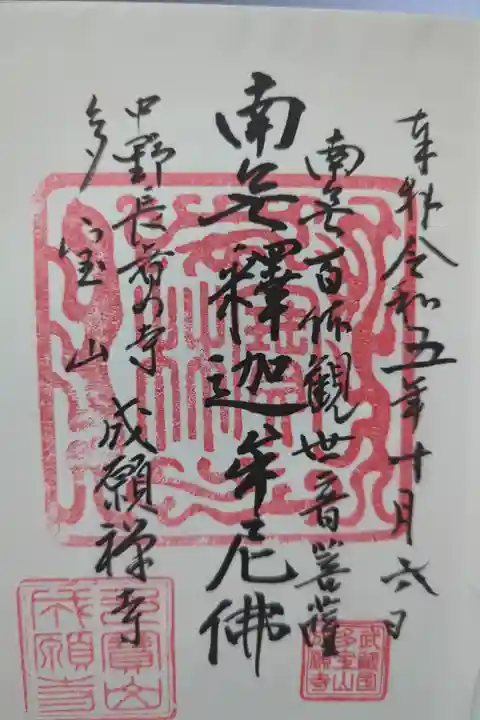 奉拝令和五年十月六日
南無百体観世音菩薩
南無釋迦牟尼佛
中野長者の寺 成願禅寺
多宝山
武蔵国
多宝山
成願寺
多寶山
成願寺